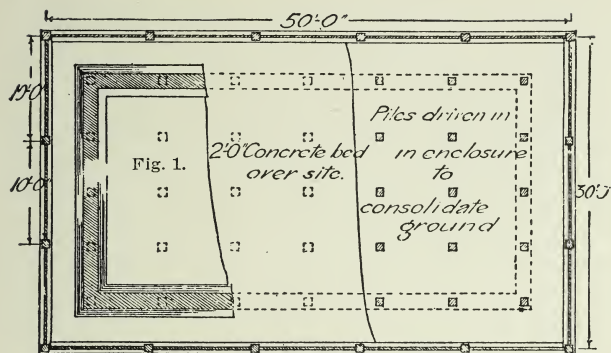 50'-0"
10'-0"
10'-0"
30'-0"
Fig. 1.
2'-0" Concrete bed
over site.
Piles driven in
in enclosure
to
consolidate
ground